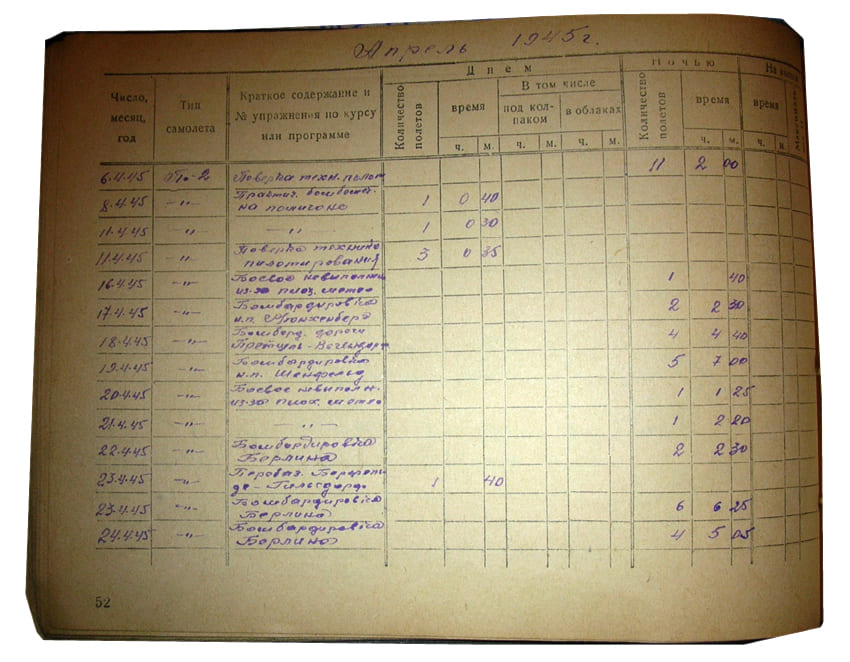 Апрель 1945г.
Число, месяц, год
Тип самолета
Краткое содержание и № упражнения по курсу или программе
Днем
Количество полетов
время
ч. м.
В том числе
под кол-
паком
ч. м.
в облаках
ч. м.
Ночью
Количество полетов
время
ч. м.
время
ч. м.
6.4.45 По-2 Поверка техн. пилот 11 2 00
8.4.45 -"- Практич. бомбомет.
на полигоне 1 0 40
11.4.45 -"- -"- 1 0 30
11.4.45 -"- Поверка техники
пилотирования 3 0 35
16.4.45 -"- Боевое невыполнен
из-за плох. метео 1 40
17.4.45 -"- Бомбардировка
н.п. Мюнхенберг 2 2 30
18.4.45 -"- Бомбард. дороги
4 4 40
19.4.45 -"- Бомбардировка
н.п. Шенфельд 5 7 00
20.4.45 -"- Боевое невыполн.
из-за плох. метео 1 1 25
21.4.45 -"- -"- 1 2 20
22.4.45 -"- Бомбардировка
Берлина 2 2 30
23.4.45 -"- Перебаз.
1 40
23.4.45 -"- Бомбардировка
Берлина 6 6 25
24.4.45 -"- Бомбардировка
Берлина 4 5 05
52